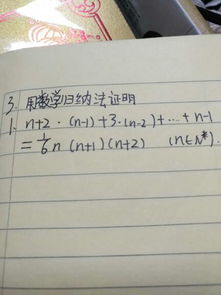 3. 用数学归纳法证明
1· n+2·(n-1)+3·(n-2)+…+n·1
=1/6 n(n+1)(n+2) (n∈N*).